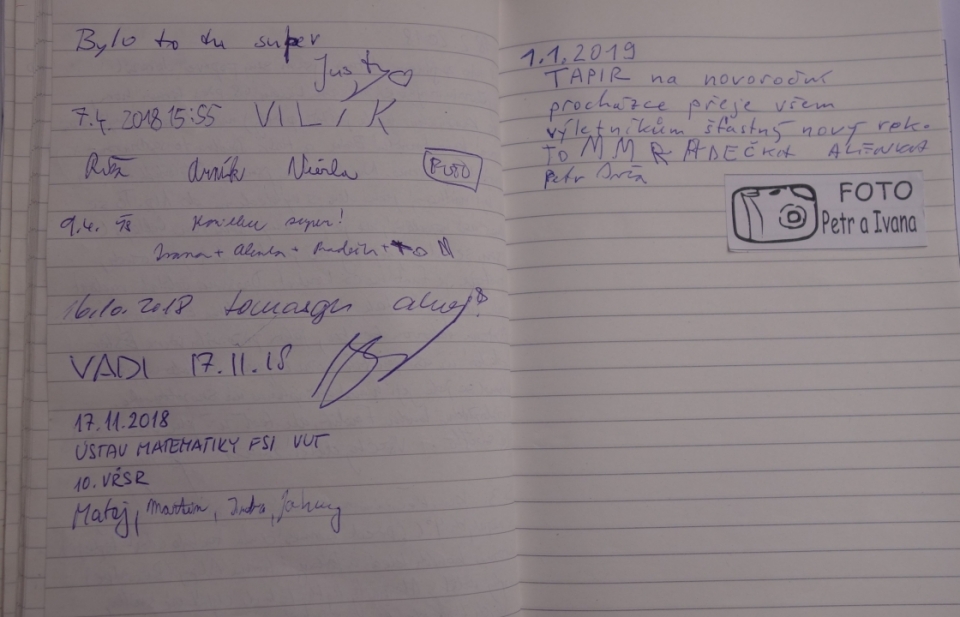 Bylo to tu super
Justy
7.4. 2018 15:55 VILÍK
9.4. 18 super!
Ivana + Alenka + + TO M
16.10.2018 ahoj!
VADI 17.11.18
17.11.2018
ÚSTAV MATEMATIKY FSI VUT
10. VŘSR
Matěj, Martin, Jindra, Johny
1.1.2019
TAPIR na novoroční
procházce přeje všem
výletníkům šťastný nový rok.
TO MMR ADEČKA ALENKA
Petr
FOTO
Petr a Ivana